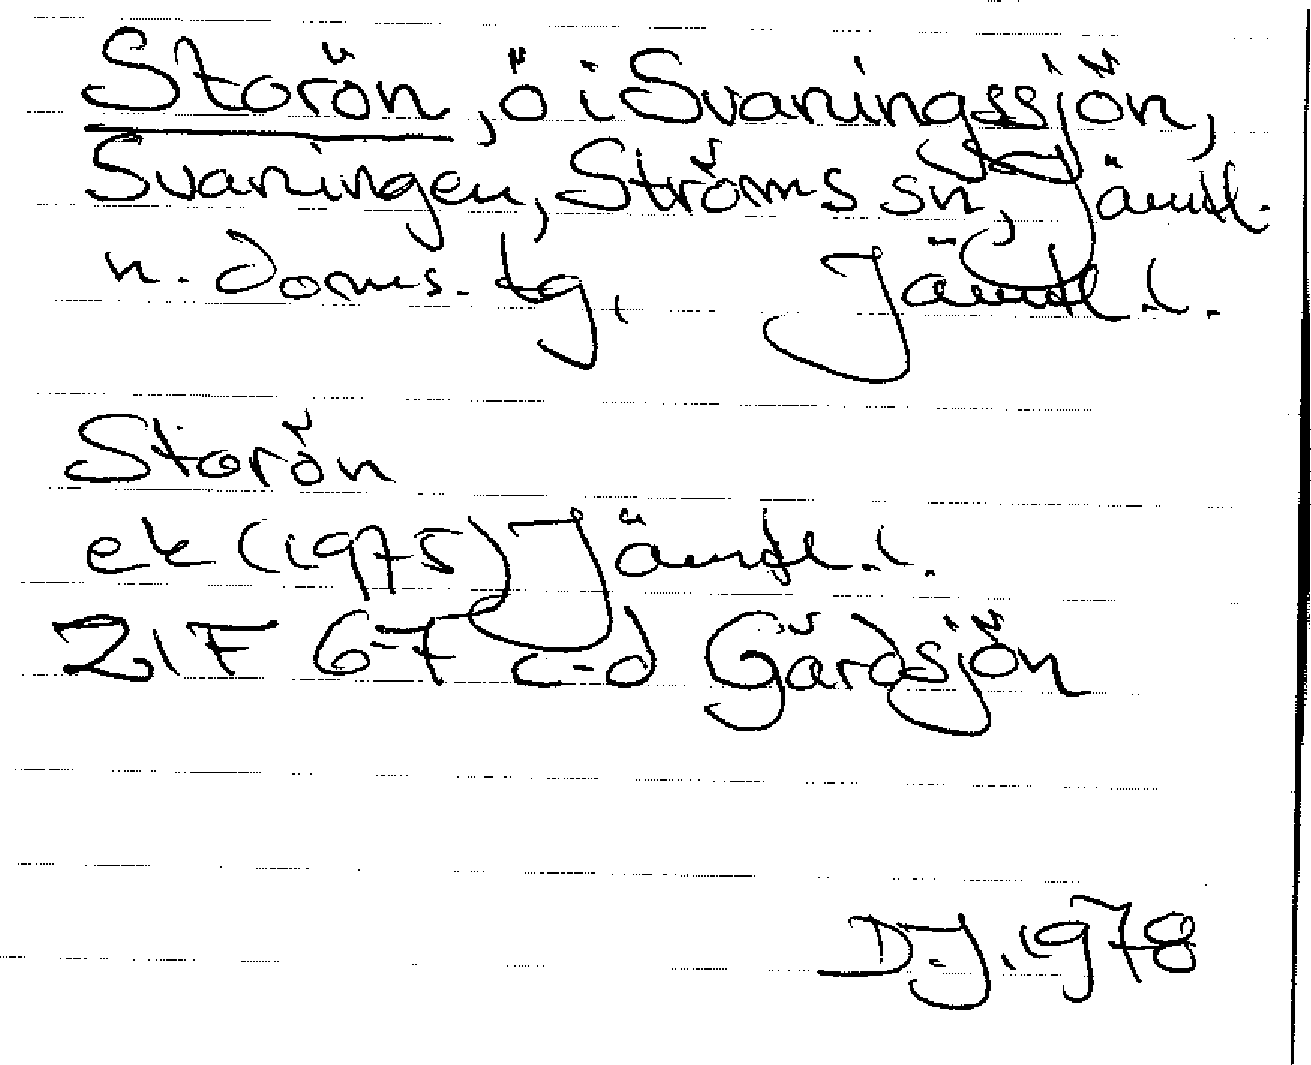 Storön, ö i Svaningssjön,
Svaningen, Ströms sn, Jämtl.
n. doms. tg, Jämtl. l.
Storön
ek (1975) Jämtl. l.
21F 6-7 c-d Gårdsjön
D.J. 1978